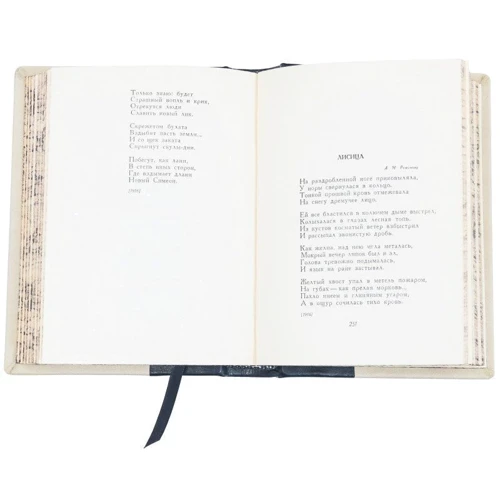 Только знаю: будет
Страшный вопль и крик,
Отрекутся люди
Славить новый лик.
Скрежетом булата
Вздыбят пасть земли...
И со щек заката
Спрыгнут скулы-дни.
Побегут, как лани,
В степь иных сторон,
Где вздымает длани
Новый Симеон.
ЛИСИЦА
А. М. Ремизову
На раздробленной ноге приковыляла,
У норы свернулася в кольцо.
Тонкой прошвой кровь отмежевала
На снегу дремучее лицо.
Ей все бластился в колючем дыме выстрел,
Колыхалася в глазах лесная топь.
Из кустов косматый ветер взбыстрил
И рассыпал звонистую дробь.
Как желна, над нею мгла металась,
Мокрый вечер липок был и ал.
Голова тревожно подымалась,
И язык на ране застывал.
Желтый хвост упал в метель пожаром,
На губах — как прелая морковь...
Пахло инеем и глиняным угаром,
А в ощур сочилась тихо кровь.